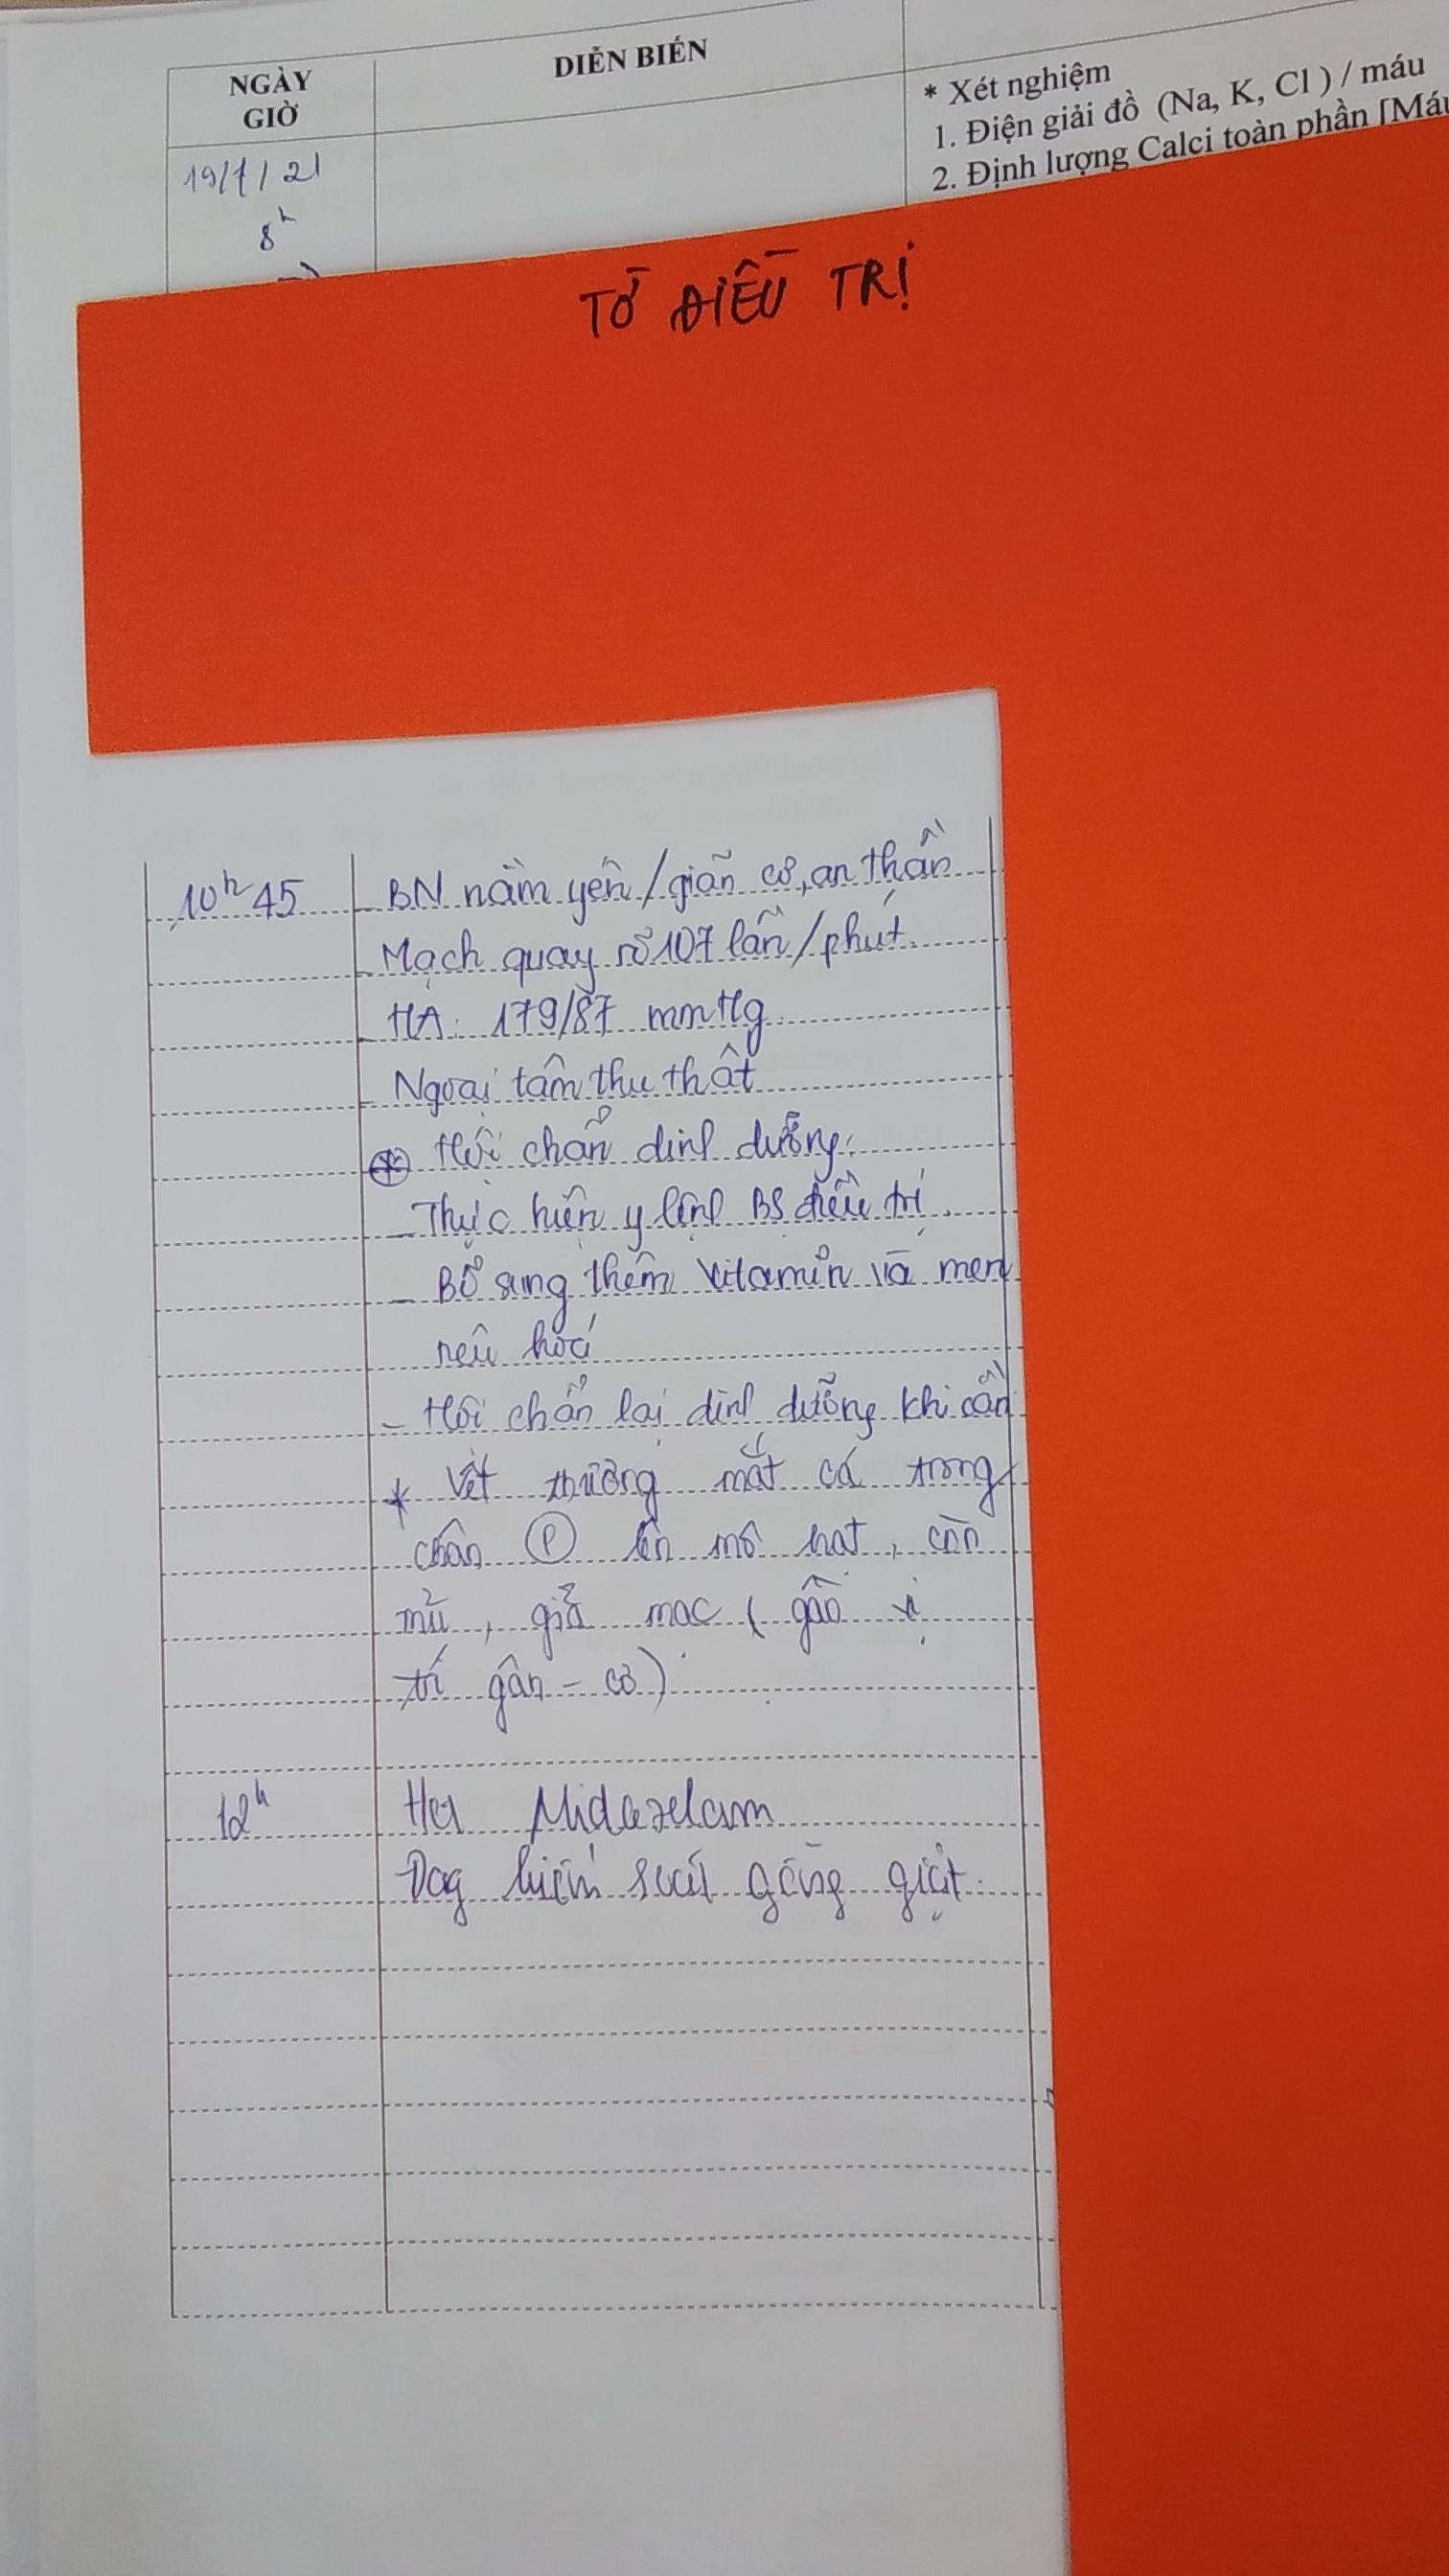 NGÀY
GIỜ
DIỄN BIẾN
* Xét nghiệm
1. Điện giải đồ (Na, K, Cl ) / máu
2. Định lượng Calci toàn phần [Máu
19/1/21
8h
TỜ ĐIỀU TRỊ
10h45
- BN nằm yên/giãn cơ, an thần
- Mạch quay rõ 107 lần/phút.
- HA: 179/87 mmHg
- Ngoại tâm thu thất
Hội chẩn dinh dưỡng:
- Thực hiện y lệnh BS điều trị.
- Bổ sung thêm vitamin và men
tiêu hoá
- Hội chẩn lại dinh dưỡng khi cần
* Vết thương mắt cá trong
chân (P) lên mô hạt, còn
mủ, giả mạc (gần vị
trí gân - cơ)
12h
Hết Midazolam
Đang hiện suất gồng giật.